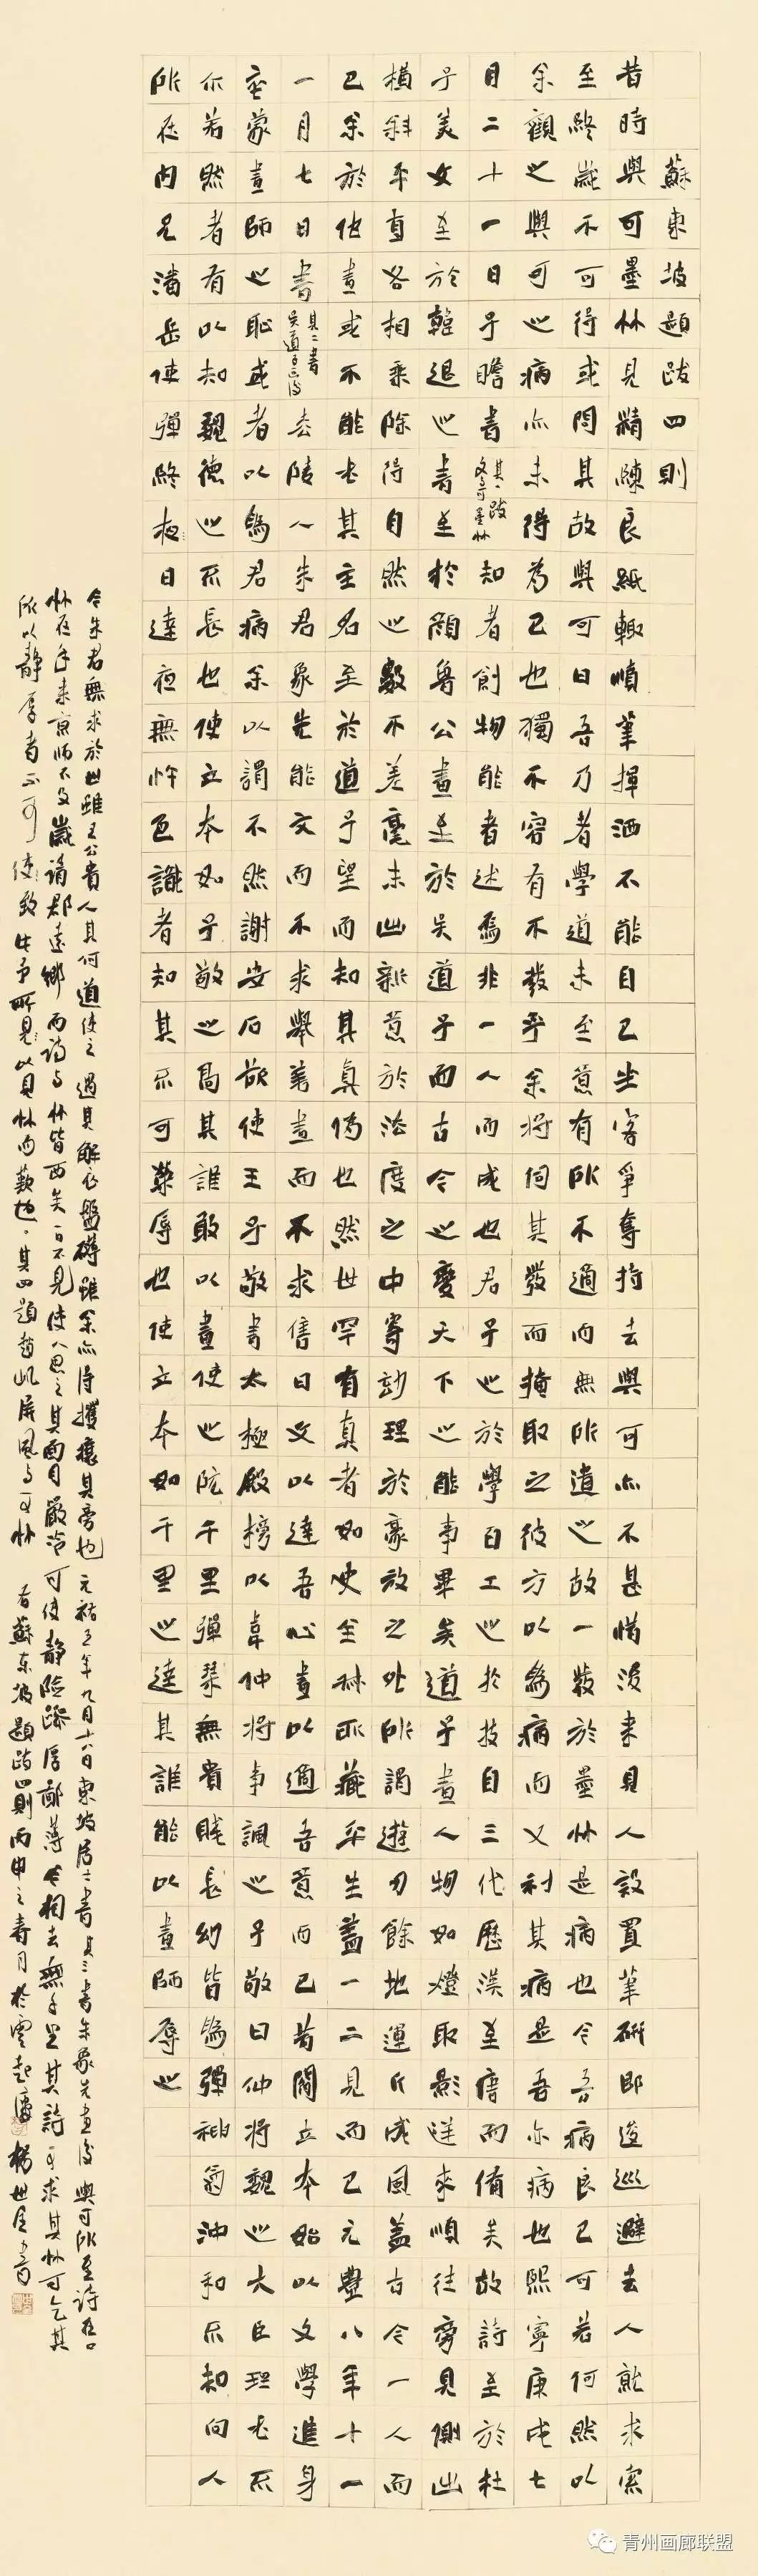 蘇東坡題跋四則
昔時與可墨竹見精練良紙輒憤筆揮洒不能自已坐客爭奪持去與可亦不甚惜後来見人設置筆研即逡巡避去人就求索
至終歲不可得或問其故與可曰吾乃者學道未至意有所不適而無所遣之故一發於墨竹是病也今吾病良已可若何然以
余觀之與可之病亦未得為已也獨不容有不發乎余將伺其發而掩取之彼方以為病而又利其病是吾亦病也熙寧庚戌七
月二十一日子瞻書其一跋文與可墨竹知者創物能者述焉非一人而成也君子之於學百工之於技自三代歷漢至唐而備矣故詩至於杜
子美文至於韓退之書至於顏魯公畫至於吳道子而古今之變天下之能事畢矣道子畫人物如燈取影逆來順往旁見側出
橫斜平直各相乘除得自然之數不差毫末出新意於法度之中寄妙理於豪放之外所謂遊刃餘地運斤成風蓋古今一人而
已余於他畫或不能必其主名至於道子望而知其真偽也然世罕有真者如史全叔所藏平生蓋一二見而已元豐八年十一
一月七日書其二書吳道子畫後陵人朱君象先能文而不求舉善畫而不求售曰文以達吾心畫以適吾意而已昔閻立本始以文學進身
卒蒙畫師之恥或者以為君病余以謂不然謝安石欲使王子敬書太極殿榜以韋仲將事諷之子敬曰仲將魏之大臣理必不
尔若然者有以知魏德之不長也使立本如子敬之高其誰敢以畫使之阮千里彈琴無貴賤長幼皆為彈神氣沖和不知向人
所在内兄潘岳使彈終夜日達夜無忤色識者知其不可榮辱也使立本如千里之達其誰能以畫師辱之
今朱君無求於世雖王公貴人其何道使之遇其解衣盤礴雖余亦得攫攘其旁也元祐五年九月十八日東坡居士書其三書朱象先畫後與可所至詩在口
竹在手来京師不及歲請郡還鄉而詩与竹皆西矣一日不見使人思之其面目嚴冷可使靜險躁厚鄙薄今相去無千里其詩可求其竹可乞其
所以靜厚者不可使致此予所見此見竹而歎也其四題趙屼屏風与可竹右蘇東坡題跋四則丙申之春月於雲起廬楊世全書
青州画廊联盟